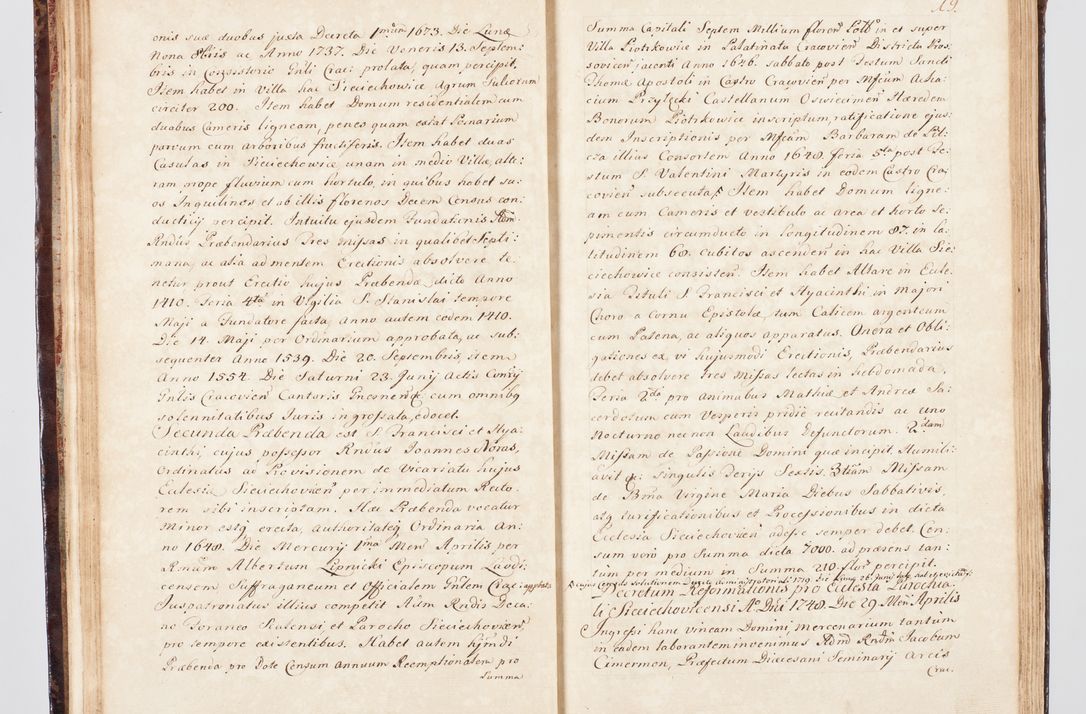 onis suæ duobus juxta Decreta 1mum 1673. Die Lunæ
Nona 8bris ac Anno 1737. Die Veneris 13. Septem:
bris in Consistorio Gnli Crac: prolata, quam percipit.
Item habet in Villa hac Sieciechowice Agrum Julierum
circiter 200. Item habet Domum residentialem cum
duabus Cameris ligneam, penes quam extat Pomarium
parvum cum arboribus fructiferis. Item habet duas
Casulas in Sieciechowice, unam in medio Villæ, alte:
ram prope fluvium cum hortulo, in quibus habet su:
os Inquilinos et ab illis florenos Decem Census con:
ductitij percipit. Intuitu ejusdem Fundationis Adm
Rndus Præbendarius Tres Missas in qualibet Septi:
mana, ac alia ad mentem Erectionis absolvere te:
netur prout Erectio hujus Præbendæ dicto Anno
1410. Feria 4ta in Vigilia S. Stanislai tempore
Maji a Fundatore facta, Anno autem eodem 1410.
Die 14. Maji per Ordinarium approbata, ac sub:
sequenter Anno 1539. Die 20. Septembris, item
Anno 1554. Die Saturni 23. Junij Actis Consrij
Gnlis Cracovien Cantoris Gnesnen cum omnibq
solennitatibus Juris ingrossata, edocet.
Secunda Præbenda est S. Francisci et Hya:
cinthi, cujus possessor Rndus Joannes Noras,
Ordinatus ad Provisionem de Vicariatu hujus
Ecclesiæ Sieciechovien per immediatum Recto:
rem sibi inscriptam. Hæc Præbenda vocatur
Minor estq erecta, authoritateq Ordinaria An:
no 1648. Die Mercurij 1ma Men Aprilis per
Rndum Albertum Lipnicki Episcopum Laodi:
censem Suffraganeum et Officialem Gnlem Crac: approbata
Juspatronatus illius competit Adm Rndis Deca:
no Foraneo Skalensi et Parocho Sieciechovien
pro tempore existentibus. Habet autem hjmdi
Præbenda pro Dote Censum Annuum Reemptionalem pro
Summa
19.
Summa Capitali Septem Millium floren Poll in et super
Villa Piotrkowice in Palatinatu Cracovien Districtu Pros:
sovicen jacenti Anno 1646. Sabbato post Festum Sancti
Thomæ Apostoli in Castro Cracovien per Mfcum Acha:
cium Przyłęcki Castellanum Oswiecimen Hæredem
Bonorum Piotrkowice inscriptum, ratificatione ejus:
dem Inscriptionis per Mfcam Barbaram de Pil:
cza illius Consortem Anno 1648. feria 5ta post Fe:
stum S. Valentini Martyris in eodem Castro Cra:
covien subsecuta. Item habet Domum ligne:
am cum Cameris et vestibulo ac area et horto se:
pimentis circumducto in longitudinem 87. in la:
titudinem 68. Cubitos ascenden in hac Villa Sie:
ciechowice consisten. Item habet Altare in Eccle:
sia Tituli S. Francisci et Hyacinthi in Majori
Choro a Cornu Epistolæ, tum Calicem argenteum
cum Patena, ac aliquos apparatus. Onera et Obli:
gationes ex vi hujusmodi Erectionis, Præbendarius
debet absolvere tres Missas lectas in hebdomada,
Feria 2da pro Animabus Mathiæ et Andreæ Sa:
cerdotum cum Vesperis pridie recitandis ac uno
Nocturno nec non Laudibus Defunctorum. 2dam
Missam de Passione Domini quæ incipit Humili:
avit &: singulis Ferijs Sextis. 3tiam Missam
de Bma Virgine Maria Diebus Sabbativis,
atq turificationibus et Processionibus in dicta
Ecclesia Sieciechovien adesse semper debet. Cen:
sum vero pro Summa dicta 7000. ad præsens tan:
tum per medium in Summa 210. flor percipit.
Decretum Reformationis pro Ecclesia Parochia:
li Sieciechovicensi Ao Dni 1748. Die 29. Men: Aprilis
Ingressi hanc vineam Domini mercenarium tantum
in eadem laborantem invenimus Admd Rndm Jacobum
Cimermon, Præfectum Diœcesani Seminarij Arcis
Crac.